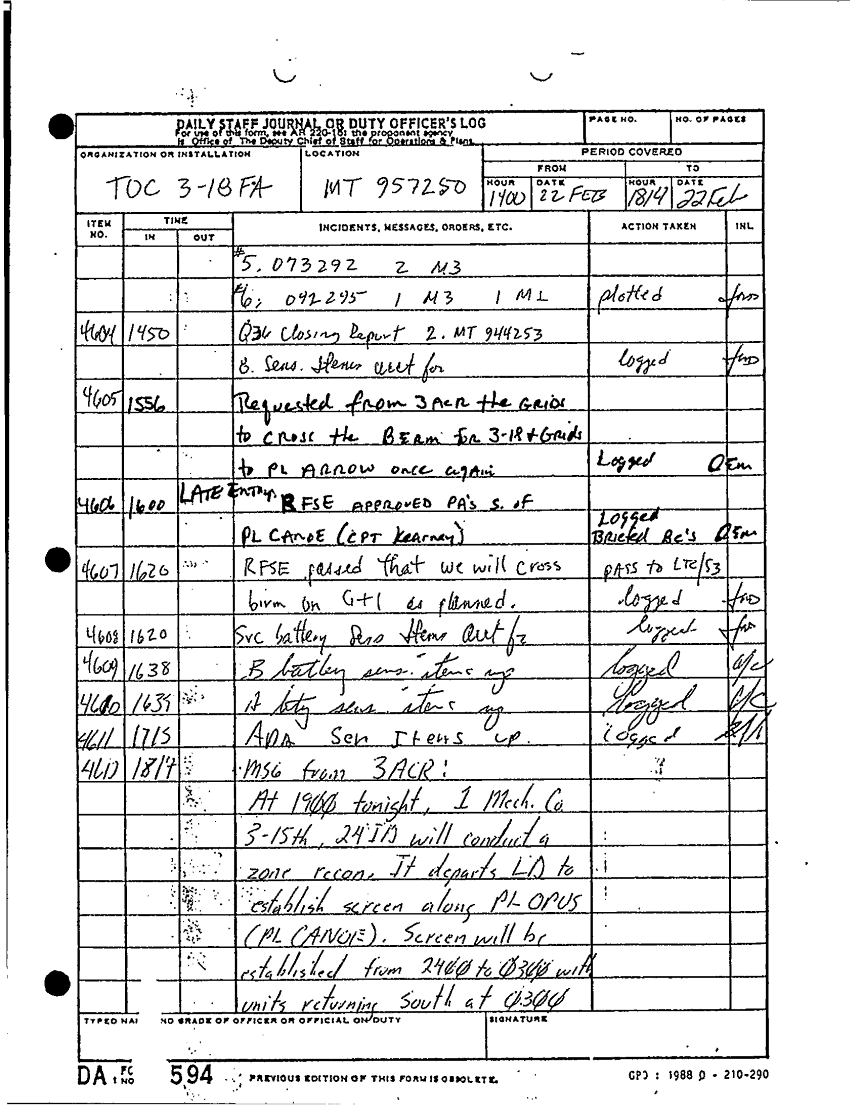 DAILY STAFF JOURNAL OR DUTY OFFICER'S LOG
For use of this form, see AR 220-15; the proponent agency
is Office of The Deputy Chief of Staff for Operations & Plans.
PAGE NO.
NO. OF PAGES
ORGANIZATION OR INSTALLATION
TOC 3-18 FA
LOCATION
MT 957250
PERIOD COVERED
FROM
TO
HOUR
1400
DATE
22 FEB
HOUR
1814
DATE
22 Feb
ITEM NO.
TIME
IN
OUT
INCIDENTS, MESSAGES, ORDERS, ETC.
ACTION TAKEN
INL
#5. 073292 2 M3
#6. 092295 1 M3 1 M1 plotted
4604 1450 Q36 Closing Report 2. MT 944253
8. Sens. Items acct for logged
4605 1556 Requested from 3ACR the GRIDS
to CROSS the BERM for 3-18 + Grids
to PL ARROW once again Logged
4606 1600 LATE Entry. RFSE APPROVED PA's S. of
PL CANOE (CPT Kearney) Logged Briefed BC's
4607 1620 RFSE passed that we will cross PASS to LTC/S3
birm on G+1 as planned. logged
4608 1620 Svc battery Sens Items acct for logged
4609 1638 B battery sens. items up logged
4610 1639 A bty sens. items up logged
4611 1715 ADA Sen Items up. Logged
1817 MSG from 3ACR:
At 1900 tonight, 1 Mech. Co
3-15th, 24ID will conduct a
zone recon. It departs LD to
establish screen along PL OPUS
(PL CANOE). Screen will be
established from 2400 to 0300 with
units returning South at 0300
TYPED
GRADE OF OFFICER OR OFFICIAL ON DUTY
SIGNATURE
DA
594
PREVIOUS EDITION OF THIS FORM IS OBSOLETE.
GPO : 1988 0 - 210-290